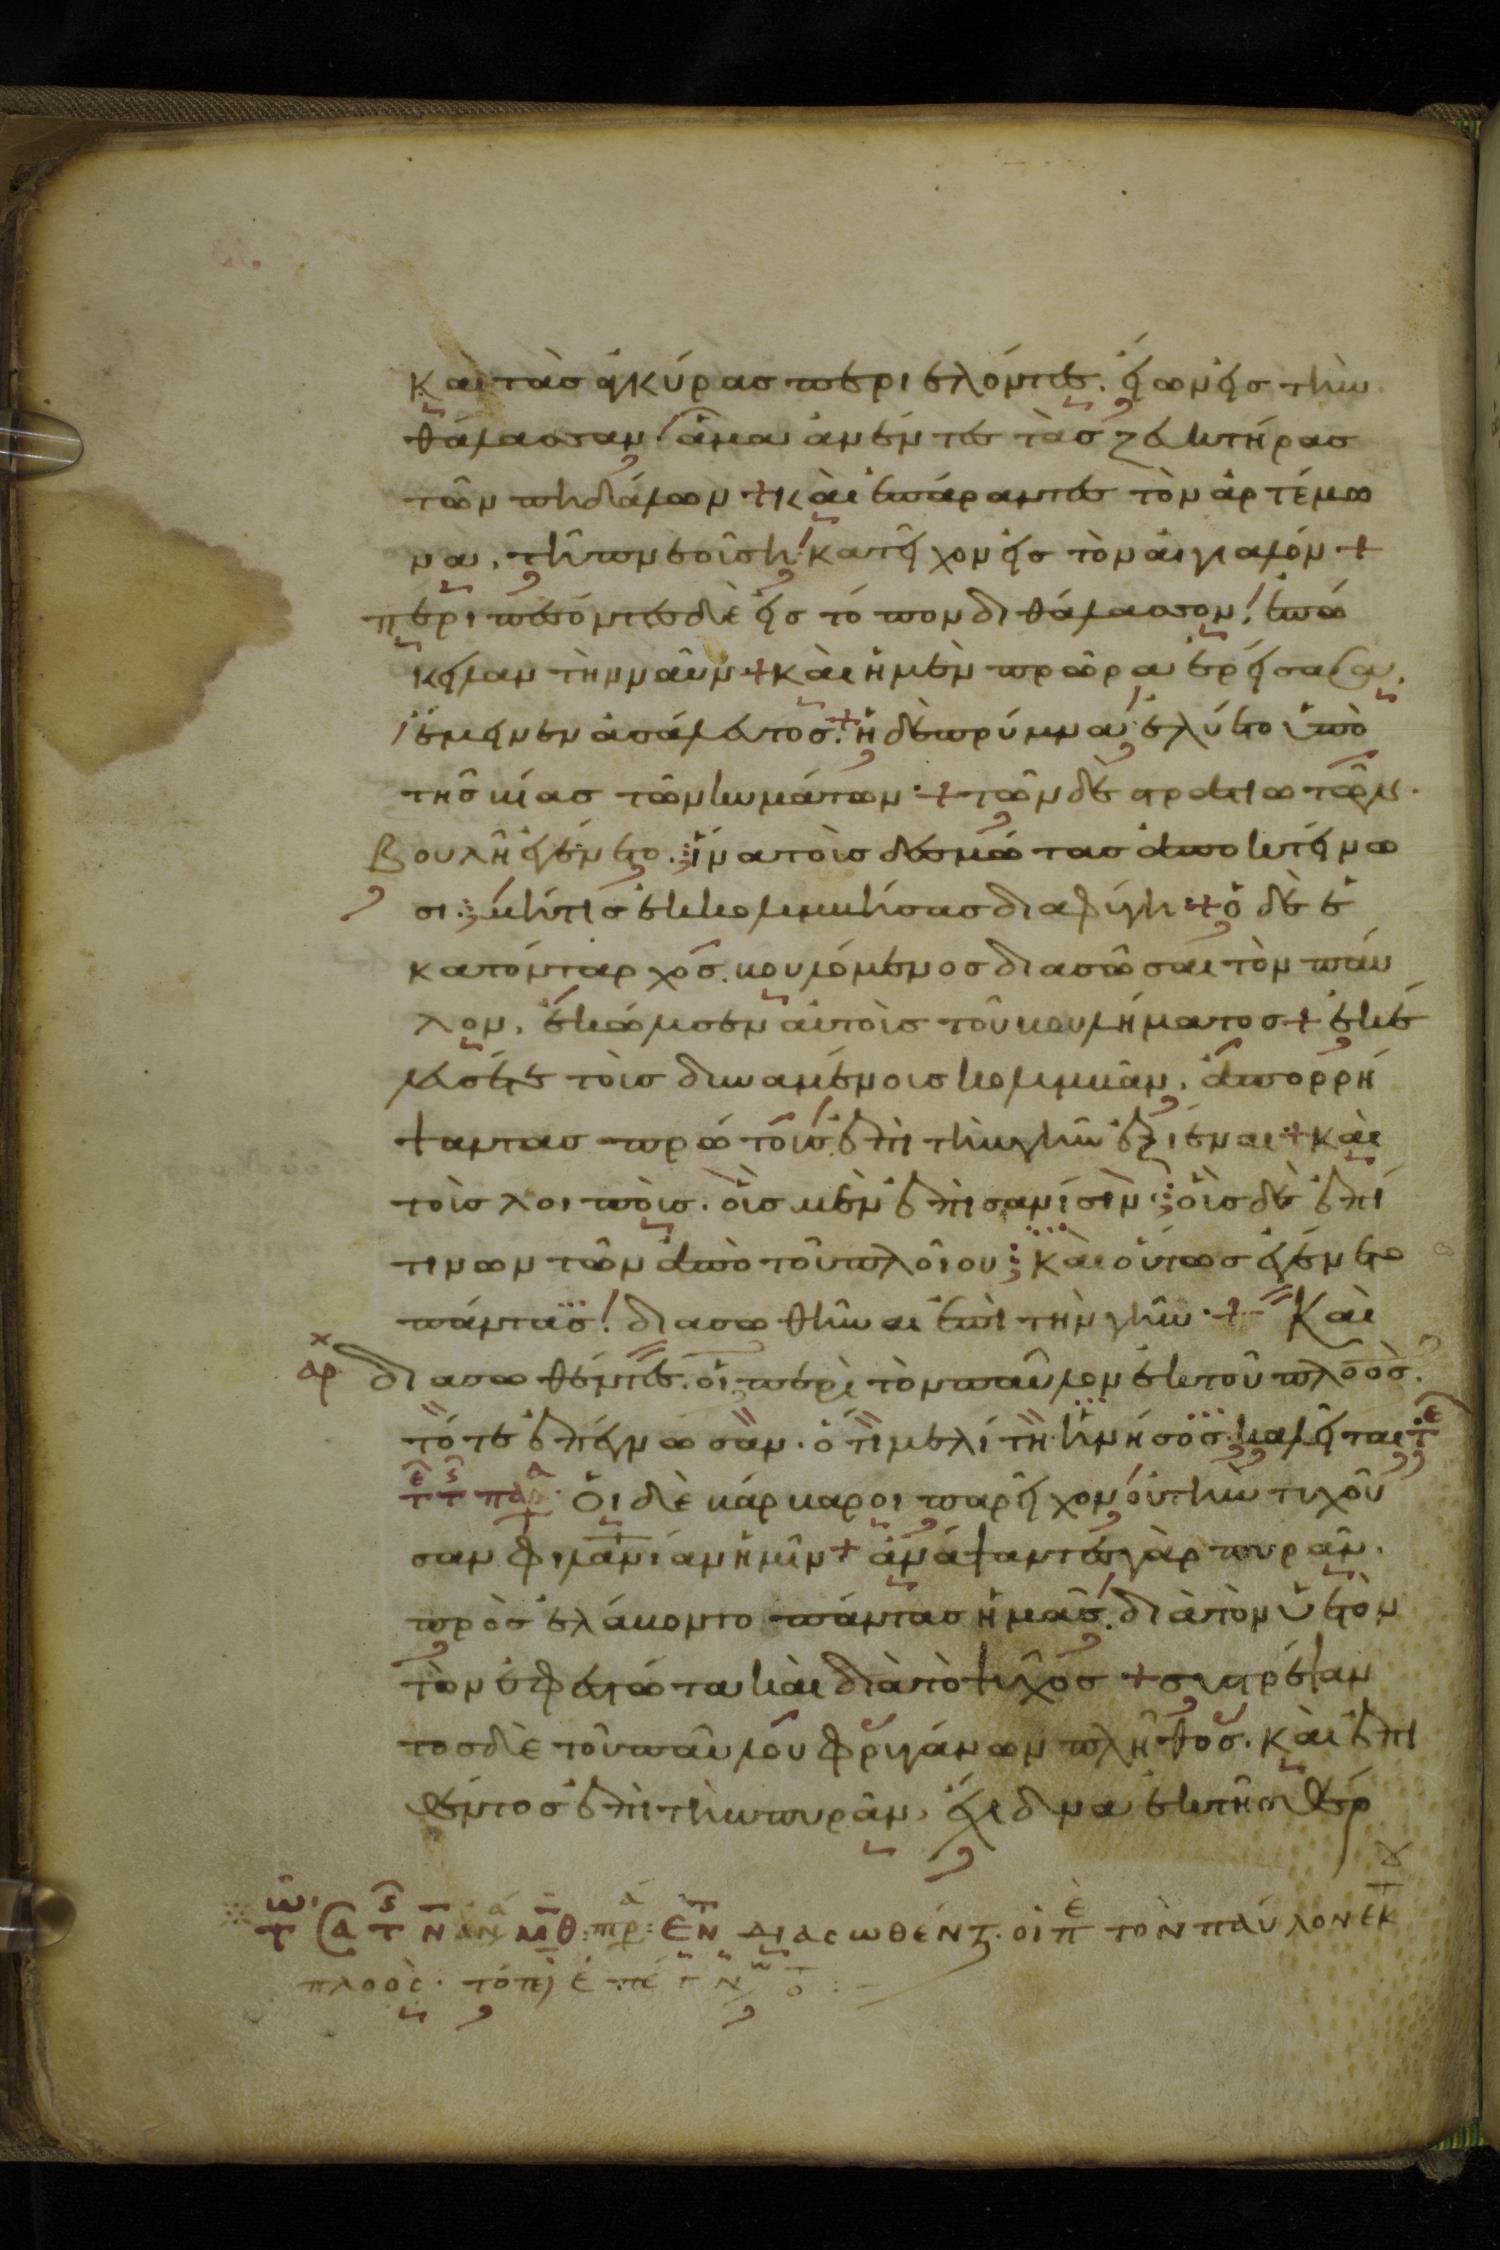 καὶ τὰς ἀγκύρας περιελόντες. εἴων εἰς τὴν
θάλασσαν ἅμα ἀνέντες τὰς ζευκτήρας
τῶν πηδάλιων + καὶ ἐπάραντες τὸν ἀρτέμω
να, τῆ πνεούση κατεῖχον εἰς τὸν αἰγιαλόν +
περιπεσόντες δὲ εἰς τόπον διθάλασσον, ἐπώ
κειλαν τὴν ναῦν + καὶ ἡ μὲν πρώρα ἐρείσασα,
ἔμεινεν ἀσάλευτος. + ἡ δὲ πρύμνα ἐλύετο ὑπὸ
τῆς βίας τῶν κυμάτων + τῶν δὲ στρατιωτῶν
βουλὴ ἐγένετο. ἵνα τοὺς δεσμώτας ἀποκτείνω
σι. μήτις ἐκκολυμβήσας διαφύγη + ὁ δὲ ἑ
κατόνταρχος. βουλόμενος διασῶσαι τὸν παῦ
λον, ἐκώλυσεν αὐτοὺς τοῦ βουλήματος + ἐκέ
λευσέ τε τοὺς δυναμένους κολυμβᾶν, ἀπορρί
ψαντας πρώτους ἐπὶ τὴν γῆν ἐξιέναι + καὶ
τοὺς λοιποὺς. οὓς μὲν ἐπὶ σανίσιν. οὓς δὲ ἐπί
τινων τῶν ἀπὸ τοῦ πλοίου καὶ οὕτως ἐγένετο
πάντας διασωθῆναι ἐπὶ τὴν γῆν + Καὶ
αρ διασωθέντες. οἱ περὶ τὸν παῦλον ἐκ τοῦ πλοὸς.
τότε ἐπέγνωσαν. ὅτι μελίτη ἡ νῆσος καλεῖται
Οἱ δὲ βάρβαροι παρεῖχον οὐ τὴν τυχοῦ
σαν φιλανίαν ἡμῖν + ἀνάψαντες γὰρ πυρὰν.
προσελάβοντο πάντας ἡμᾶς. διὰ τὸν ὑετὸν
τὸν ἐφεστώτα καὶ διὰ τὸ ψῦχος + συστρέψαν
τος δὲ τοῦ παύλου φρυγάνων πλῆθος. καὶ ἐπι
θέντος ἐπὶ τὴν πυρὰν, ἔχιδνα ἐκ τῆς θέρ
διασωθέντ. οἱ π τὸν παῦλον ἐκ
πλοὸς.